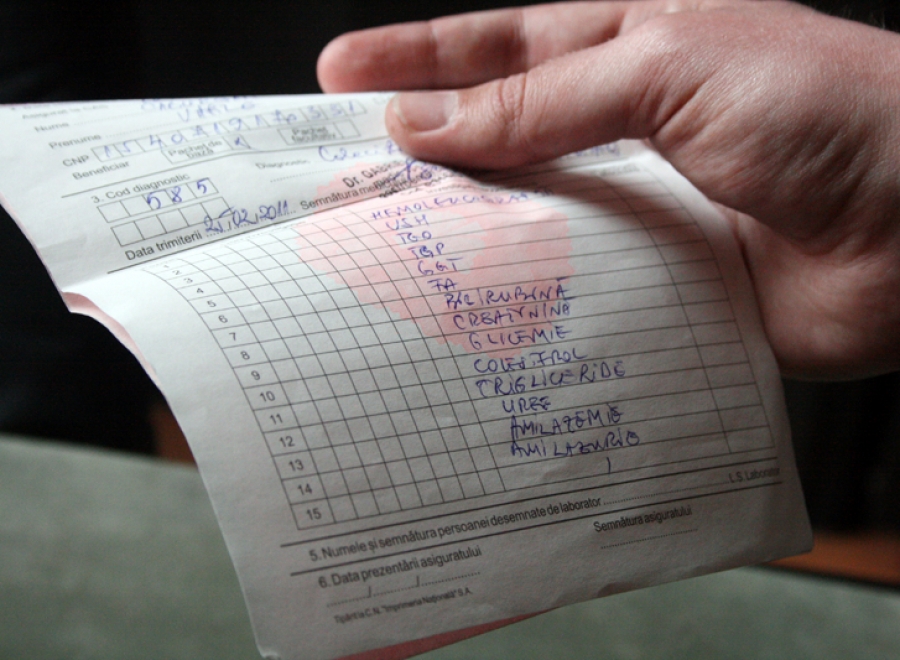 Nume
Prenume
CNP
Beneficiar Pachet de bază Pachet
Diagnostic
3. Cod diagnostic
585
Data trimiterii 25.02.2011 Semnătura
1 HEMOLEUCOGRAMA
2 VSH
3 TGO
4 TGP
5 GGT
6 FA
7 BILIRUBINĂ
8 CREATININA
9 GLICEMIE
10 COLESTEROL
11 TRIGLICERIDE
12 UREE
13 AMILAZEMIE
14 AMILAZURIE
15
L.S. Laborator
5. Numele și semnătura persoanei desemnate de laborator
Semnătura asiguratului
6. Data prezentării asiguratului
Tipărit la C.N. "Imprimeria Națională" S.A.